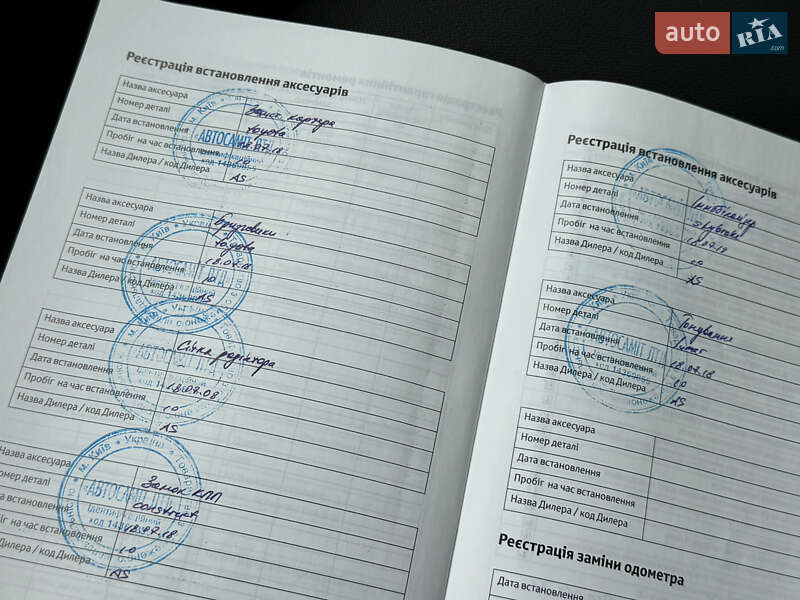 auto RIA .com
Реєстрація встановлення аксесуарів
Назва аксесуара
Номер деталі Toyota
Дата встановлення
Пробіг на час встановлення 10
Назва Дилера / код Дилера AS
м. Київ
АВТОСАМІТ ЛТД
Назва аксесуара Бризговики
Номер деталі Toyota
Дата встановлення
Пробіг на час встановлення 10
Назва Дилера / код Дилера AS
Назва аксесуара Сітка радіатора
Номер деталі
Дата встановлення 18.07.08
Пробіг на час встановлення 10
Назва Дилера / код Дилера AS
Назва аксесуара Замок КПП
Номер деталі construct
Дата встановлення 18.07.18
Пробіг на час встановлення 10
Дилера / код Дилера AS
м. Київ * Україна *
АВТОСАМІТ ЛТД
Реєстрація встановлення аксесуарів
Назва аксесуара Іммобілайзер
Номер деталі
Дата встановлення 18.07.18
Пробіг на час встановлення 10
Назва Дилера / код Дилера AS
Назва аксесуара Тонування
Номер деталі
Дата встановлення 18.07.18
Пробіг на час встановлення 10
Назва Дилера / код Дилера AS
АВТОСАМІТ ЛТД
Назва аксесуара
Номер деталі
Дата встановлення
Пробіг на час встановлення
Назва Дилера / код Дилера
Реєстрація заміни одометра
Дата встановлення